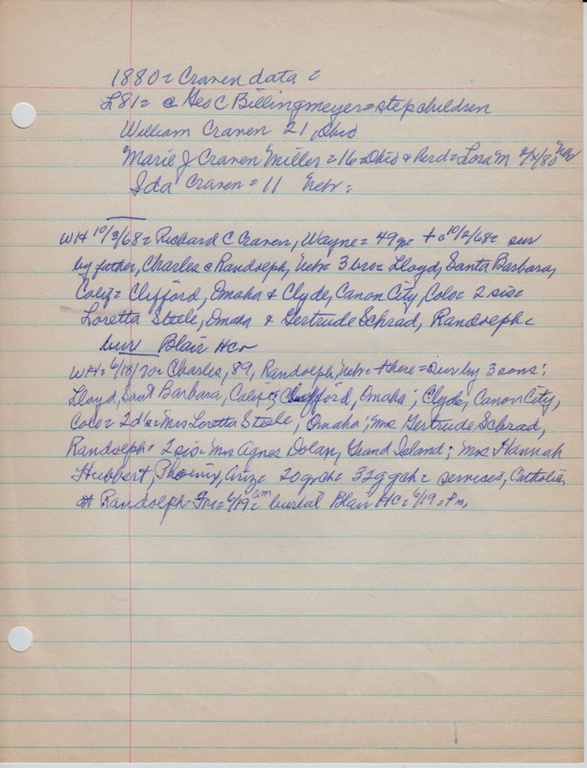 1880 = Craven data =
L81 = @ Geo C Billingmeyer = stepchildren
William Craven 21 Ohio
Marie J Craven Miller = 16 = Ohio & = Lora M 2/4/80
Ida Craven = 11 Nebr =
WH 10/3/68 = Richard C Craven, Wayne = 49 yr = + @ 10/2/68 = sur
by father, Charles @ Randolph, Nebr = 3 bro = Lloyd, Santa Barbara,
Calif = Clifford, Omaha & Clyde, Canon City, Colo = 2 sis =
Loretta Steele, Omaha & Gertrude Schrad, Randolph =
bur Blair HC
WH = 6/18/70 = Charles, 89, Randolph, Nebr = there = sur by 3 sons:
Lloyd, Sant Barbara, Calif; Clifford, Omaha; Clyde, Canon City,
Colo = 2 d's: Mrs Loretta Steele, Omaha; Mrs Gertrude Schrad,
Randolph = 2 sis = Mrs Agnes Dolan, Grand Island; Mrs Hannah
Hubbert, Phoenix, Ariz = 20 gch = 32 ggch = services, Catholic
at Randolph 6/19 = am burial Blair HC = 6/19 = Pm